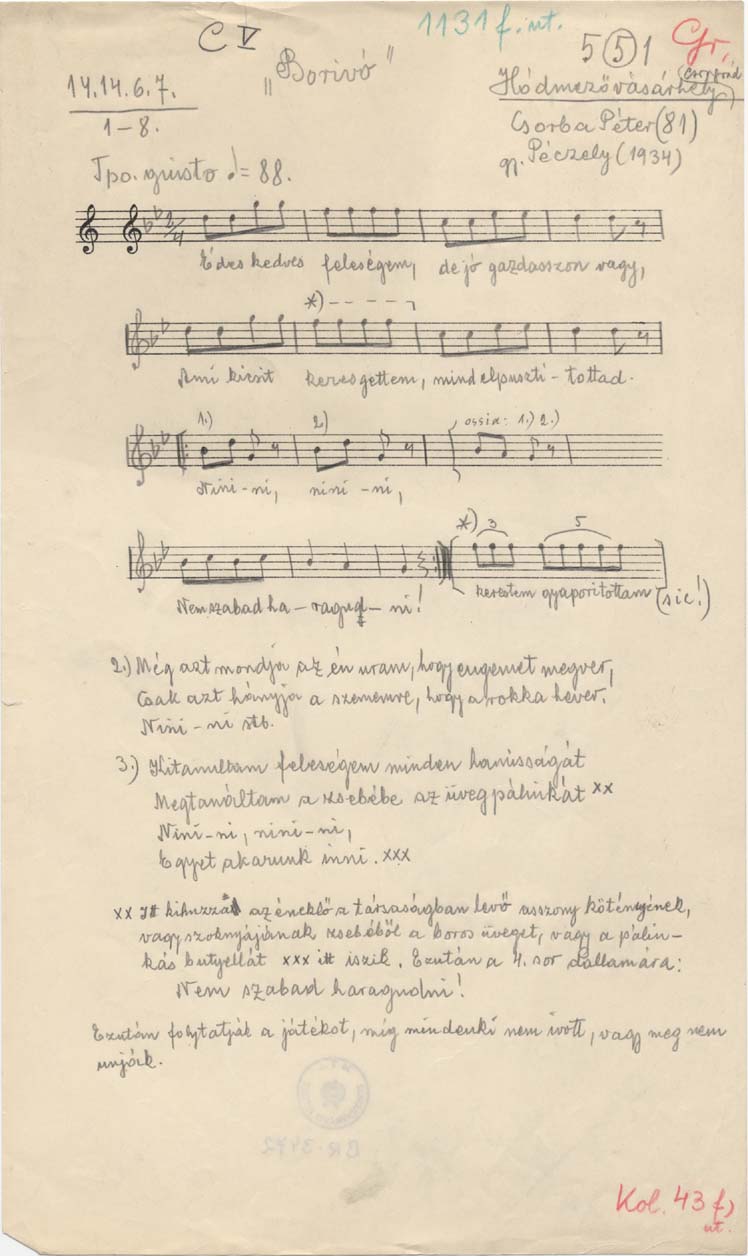 C V
1131 f. ut.
5 (5) 1
Gr.
„Borivó"
14.14.6.7.
1-8.
Hódmezővásárhely
Csorba Péter (81)
gy. Péczely (1934)
Tpo. giusto ♩= 88.
2/4
Édes kedves feleségem, de jó gazdasszon vagy,
*) - - - - ┐
Ami kicsit keresgettem, mind elpuszti - tottad.
1.) 2.) ossia: 1.) 2.)
Nini - ni, nini - ni,
*) 3 5
Nem szabad ha - ragud - ni! kerestem gyaporitottam (sic!)
2.) Még azt mondja az én uram, hogy engemet megver,
Csak azt hányja a szememre, hogy a rokka hever.
Nini - ni stb.
3.) Kitanultam feleségem minden hamisságát
Megtanáltam a zsebébe az üveg pálinkát xx
Nini - ni, nini - ni,
Egyet akarunk inni. xxx
xx Itt kihuzza az éneklő a társaságban levő asszony kötényének,
vagy szoknyájának zsebéből a boros üveget, vagy a pálin-
kás butyellát xxx itt iszik. Ezután a 4. sor dallamára:
Nem szabad haragudni!
Ezután folytatják a játékot, míg mindenki nem ivott, vagy meg nem
unják.
BR-3472
Kol. 43 f)
ut.